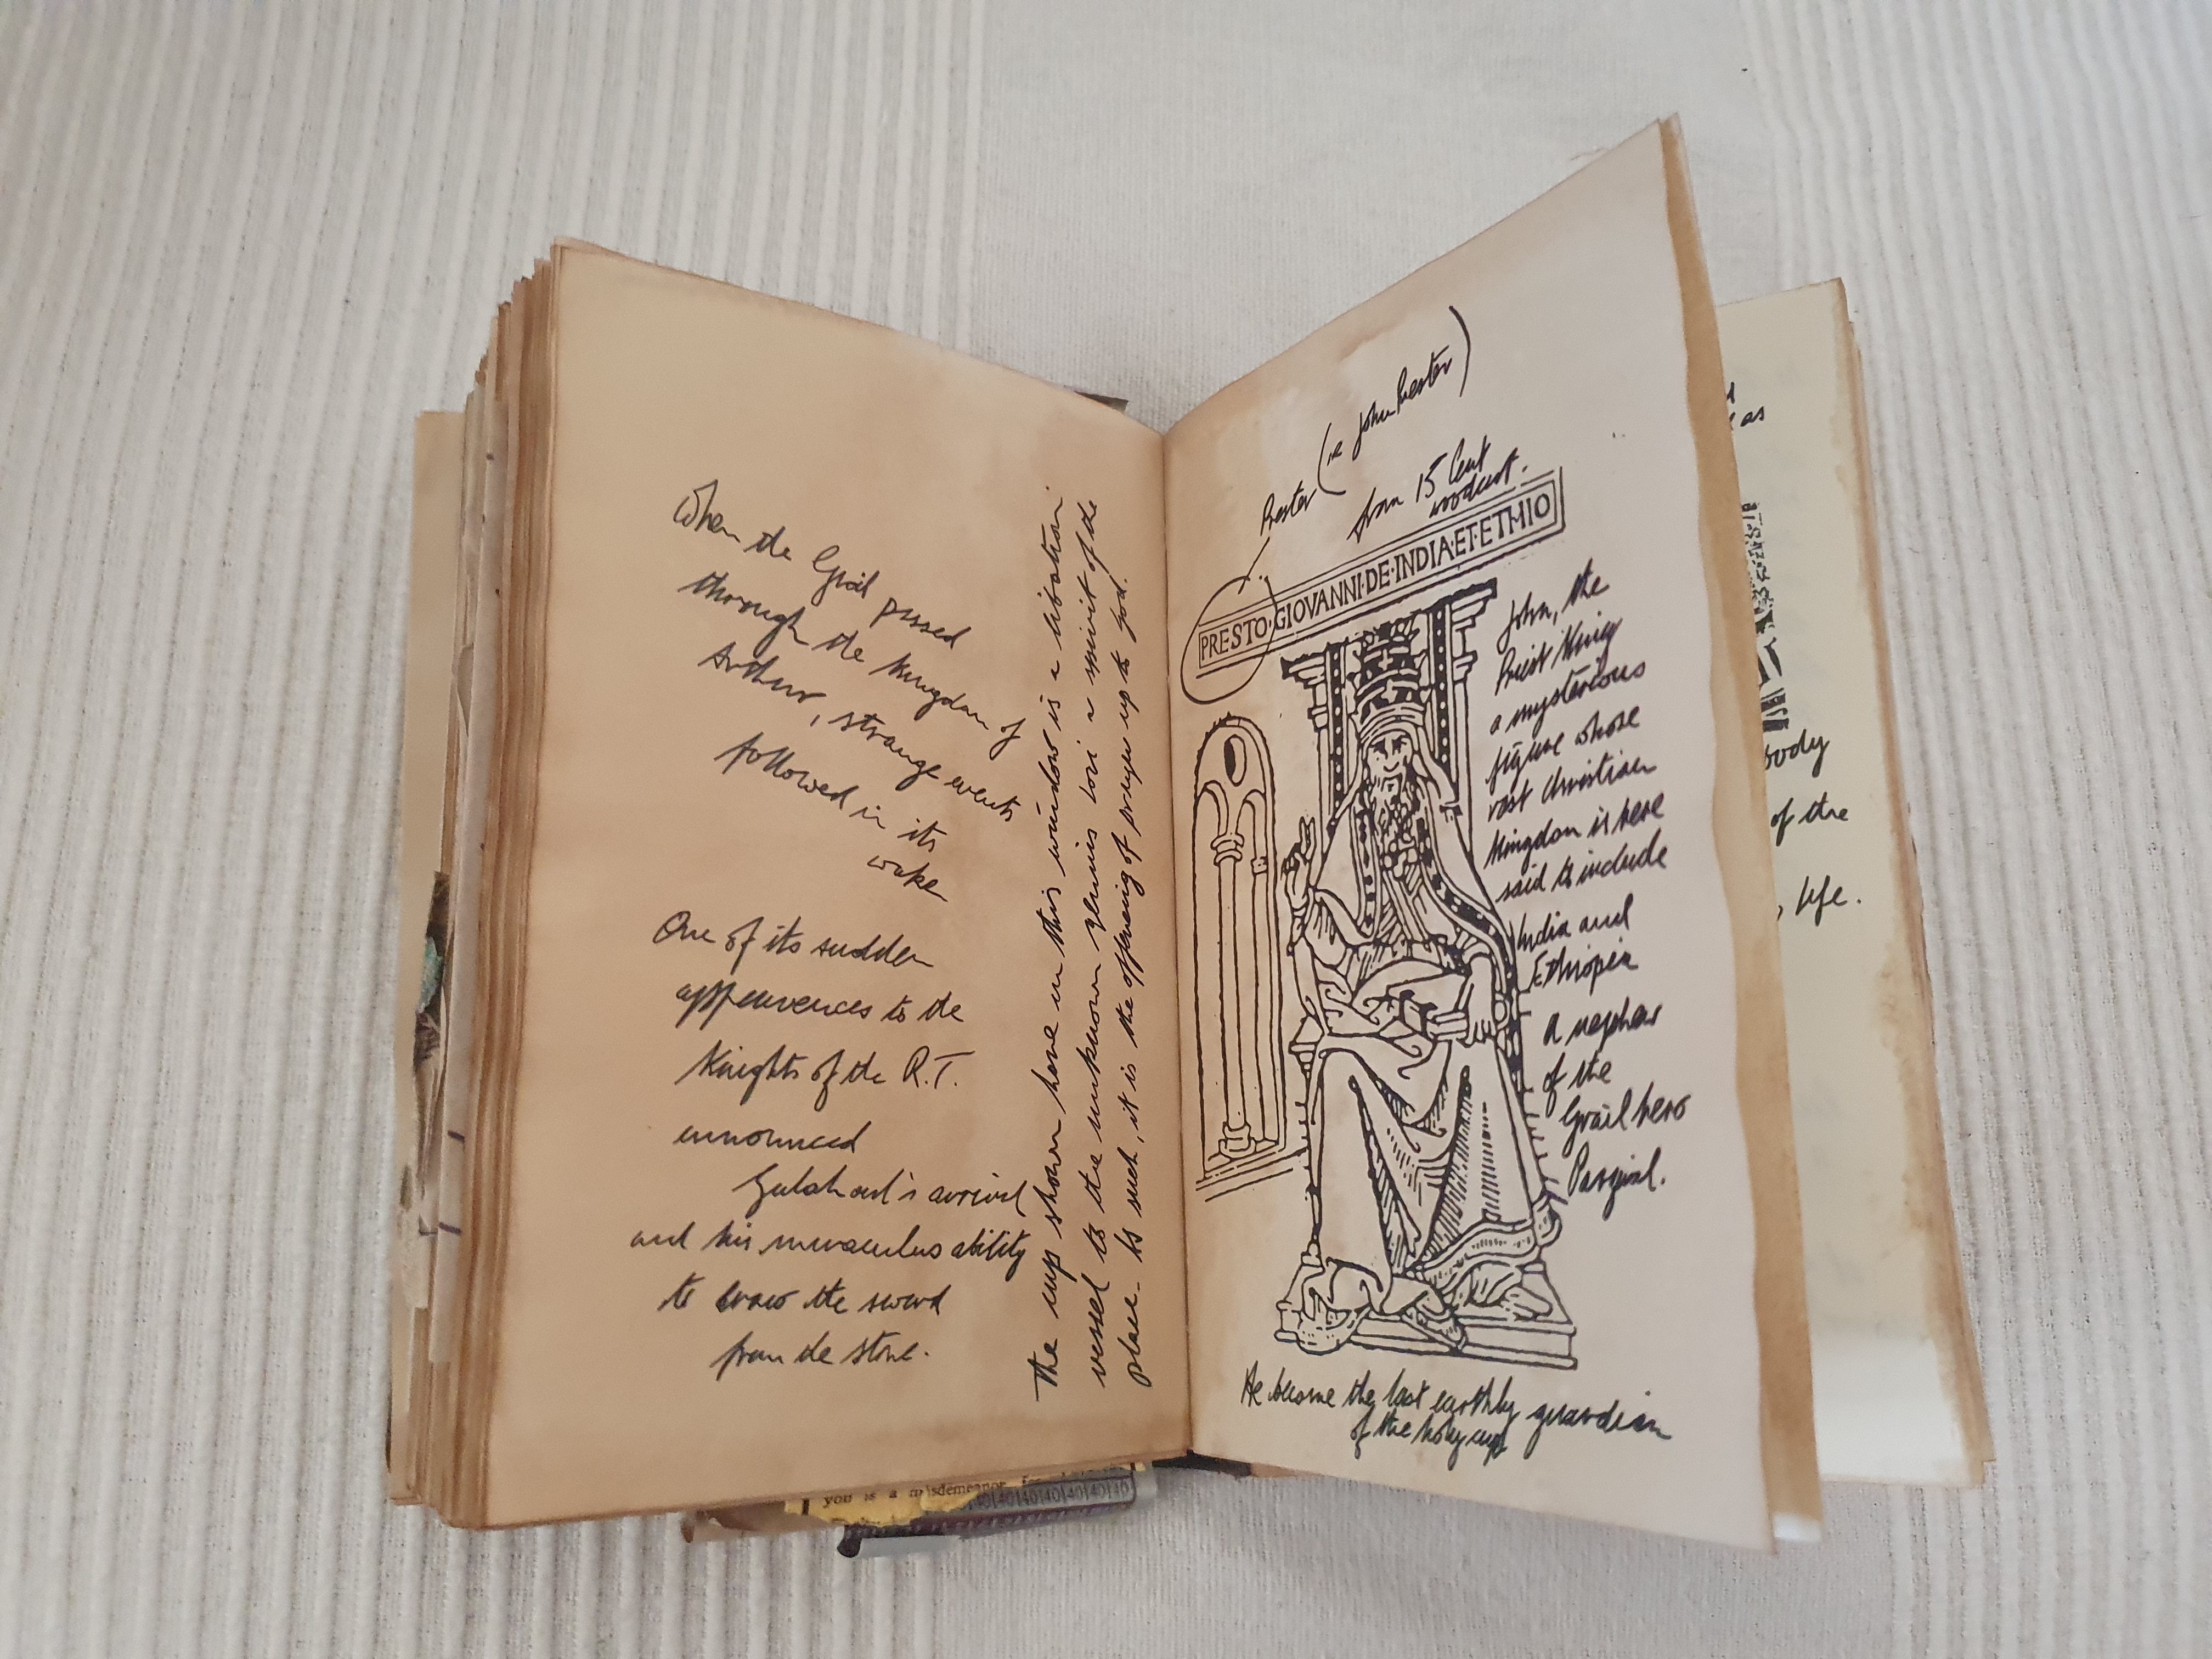 When the Grail passed
through the Kingdom of
Arthur, strange events
followed in its
wake
One of its sudden
appearences to the
Knights of the R.T.
announced
Galahad's arrival
and his miraculus ability
to draw the sword
from the stone.
The cup shown here in this window is a libation
vessel to the unknown genius loci a spirit of the
place - As such, it is the offering of prayer up to god.
Prester (ie John Prester)
from 15 Cent
woodcut.
PRESTO·GIOVANNI·DE·INDIA·ET·ETHIO
John, the
Priest King
a mysterious
figure whose
vast Christian
Kingdom is here
said to include
India and
Ethiopia
A nephew
of the
Grail hero
Parzival.
He became the last earthly guardian
of the holy cup
as
body
of the
life.
you is a misdemeanor
40 40 40 40 40 40 40